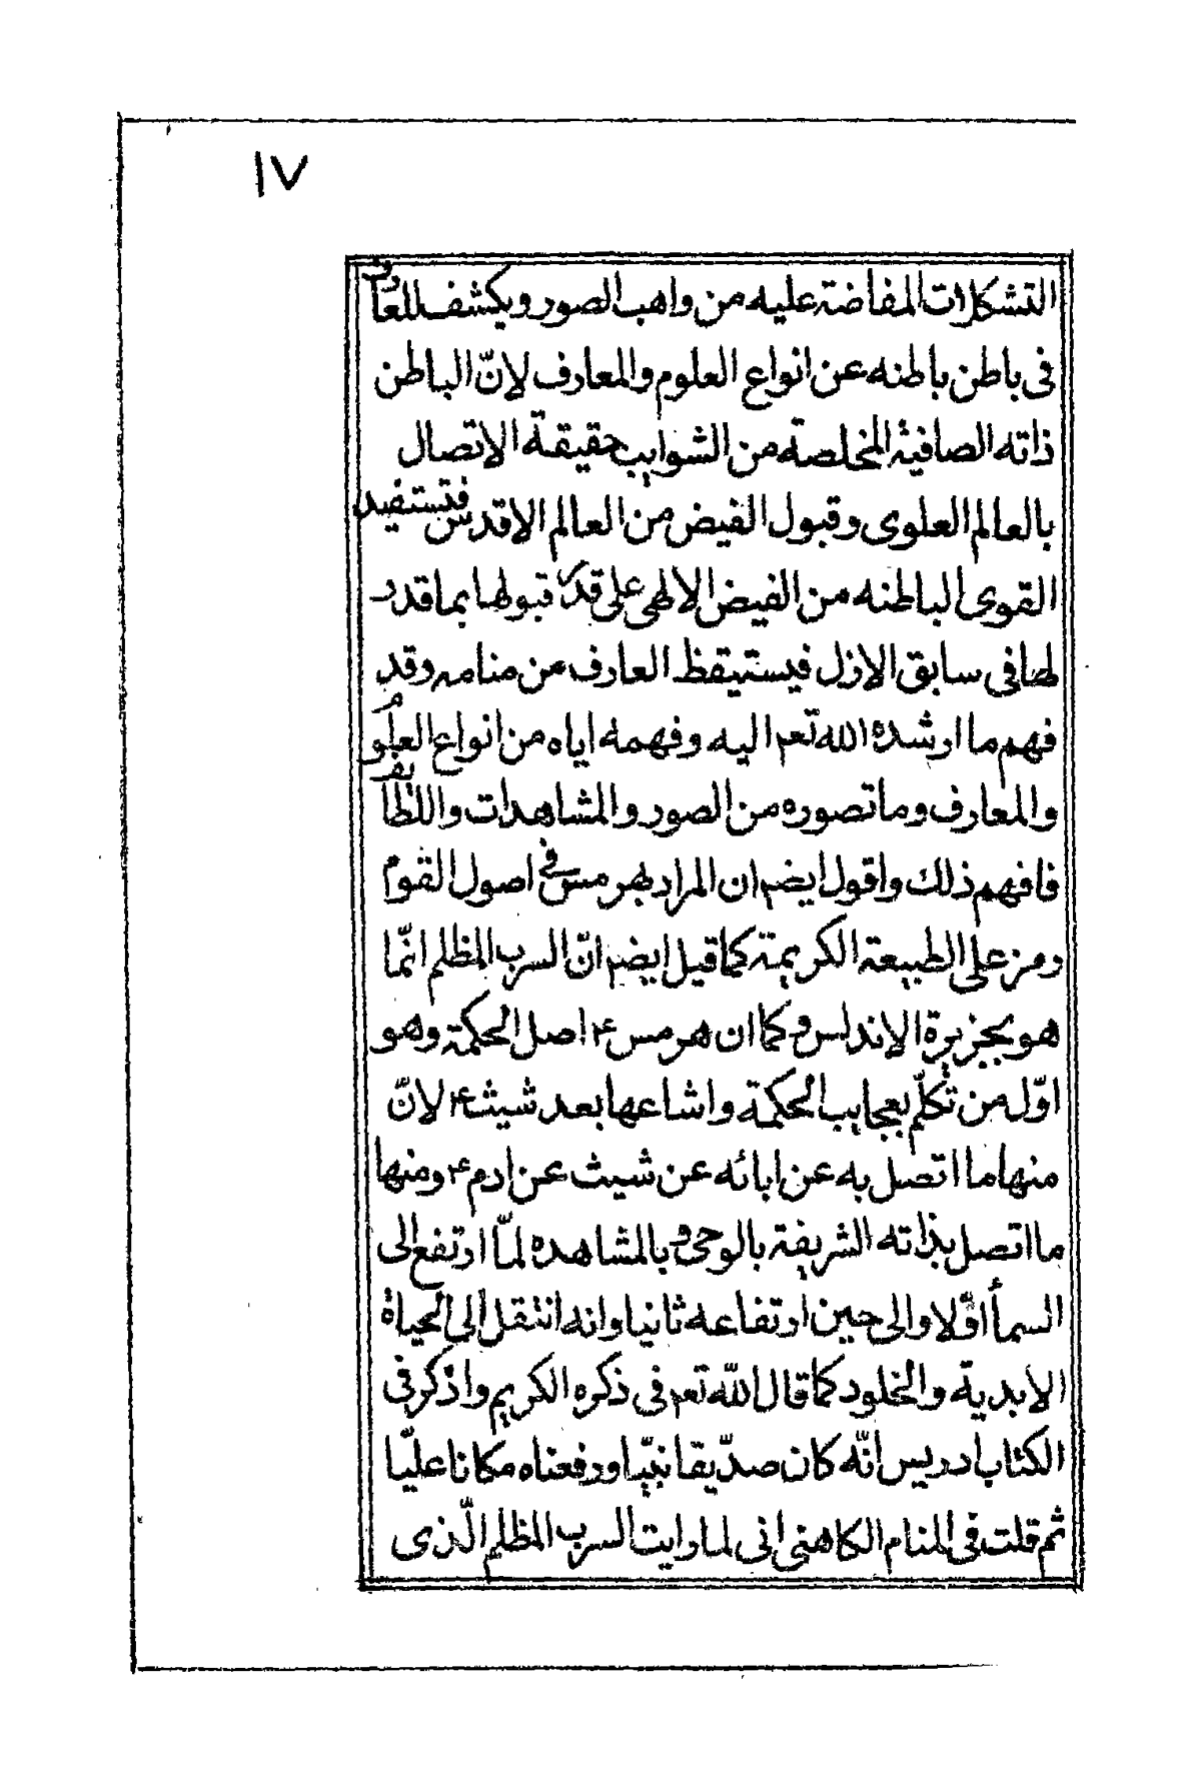 ١٧
التشكلات المفاضة عليه من واهب الصور ويكشف للعارف
فى باطن باطنه عن انواع العلوم والمعارف لانّ الباطن
ذاته الصافية المخلصة من الشوايب حقيقة الاتصال
بالعالم العلوى وقبول الفيض من العالم الاقدس فتستفيد
القوى الباطنه من الفيض الالهى على قدر قبولها بما قدر
لها فى سابق الازل فيستيقظ العارف من منامه وقد
فهم ما ارشده الله تعم اليه وفهمه اياه من انواع العلوم
والمعارف وما تصوره من الصور والمشاهدات واللطايف
فافهم ذلك واقول ايضم ان المراد بهرمس فى اصول القوم
رمز على الطبيعة الكريمة كما قيل ايضم انّ السرب المظلم انّما
هو بجزيرة الاندلس وكما ان هرمس ع اصل الحكمة وهو
اوّل من تكلّم بعجايب الحكمة واشاعها بعد شيث ع لانّ
منها ما اتصل به عن ابائه عن شيث عن ادم ع ومنها
ما اتصل بذاته الشريفة بالوحى وبالمشاهده لمّا ارتفع الى
السمأ اوّلا والى حين ارتفاعه ثانيا وانه انتقل الى الحياة
الابدية والخلود كما قال اللّه تعم فى ذكره الكريم واذكر فى
الكتاب ادريس انّه كان صدّيقا نبيّا ورفعناه مكانا عليّا
ثم قلت فى المنام الكاهنى انى لما رايت السرب المظلم الّذى